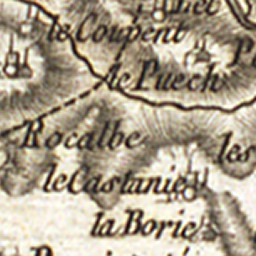 le Coupent
le Puech
Rocalbe
les
le Castanié
la Borie